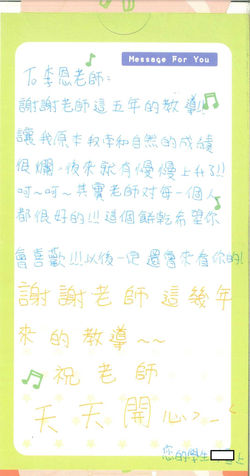 Message For You
To 李恩老師:
謝謝老師這五年的教導!!
讓我原本數學和自然的成績
很爛,後來就有慢慢上升了!!
呵~呵~其實老師對每一個人
都很好的!!!這個餅乾希望你
會喜歡!!!以後一定還會來看你的!
謝謝老師這幾年
來的教導~~
祝老師
天天開心>_<
您的學生 上